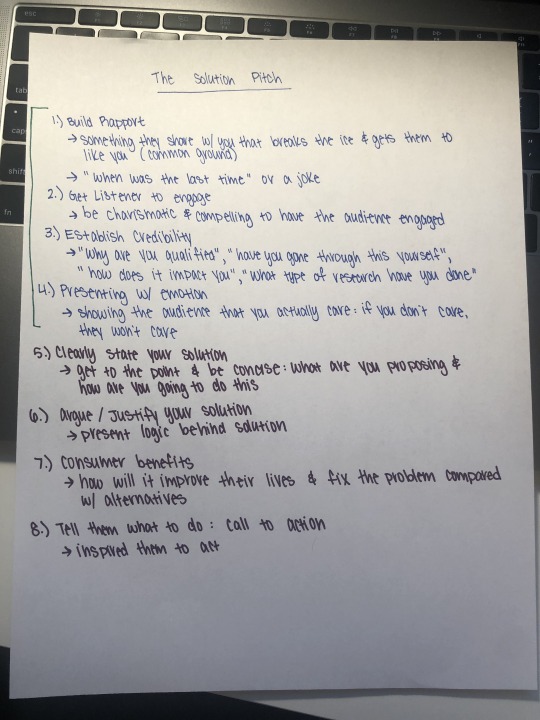 The Solution Pitch
1.) Build Rapport
→ something they share w/ you that breaks the ice & gets them to
like you (common ground)
→ "when was the last time" or a joke
2.) Get Listener to engage
→ be charismatic & compelling to have the audience engaged
3.) Establish Credibility
→ "why are you qualified", "have you gone through this yourself",
"how does it impact you", "what type of research have you done"
4.) Presenting w/ emotion
→ showing the audience that you actually care: if you don't care,
they won't care
5.) Clearly state your solution
→ get to the point & be concise: what are you proposing &
how are you going to do this
6.) argue / Justify your solution
→ present logic behind solution
7.) consumer benefits
→ how will it improve their lives & fix the problem compared
w/ alternatives
8.) Tell them what to do: call to action
→ inspired them to act
esc
tab
shift
fn